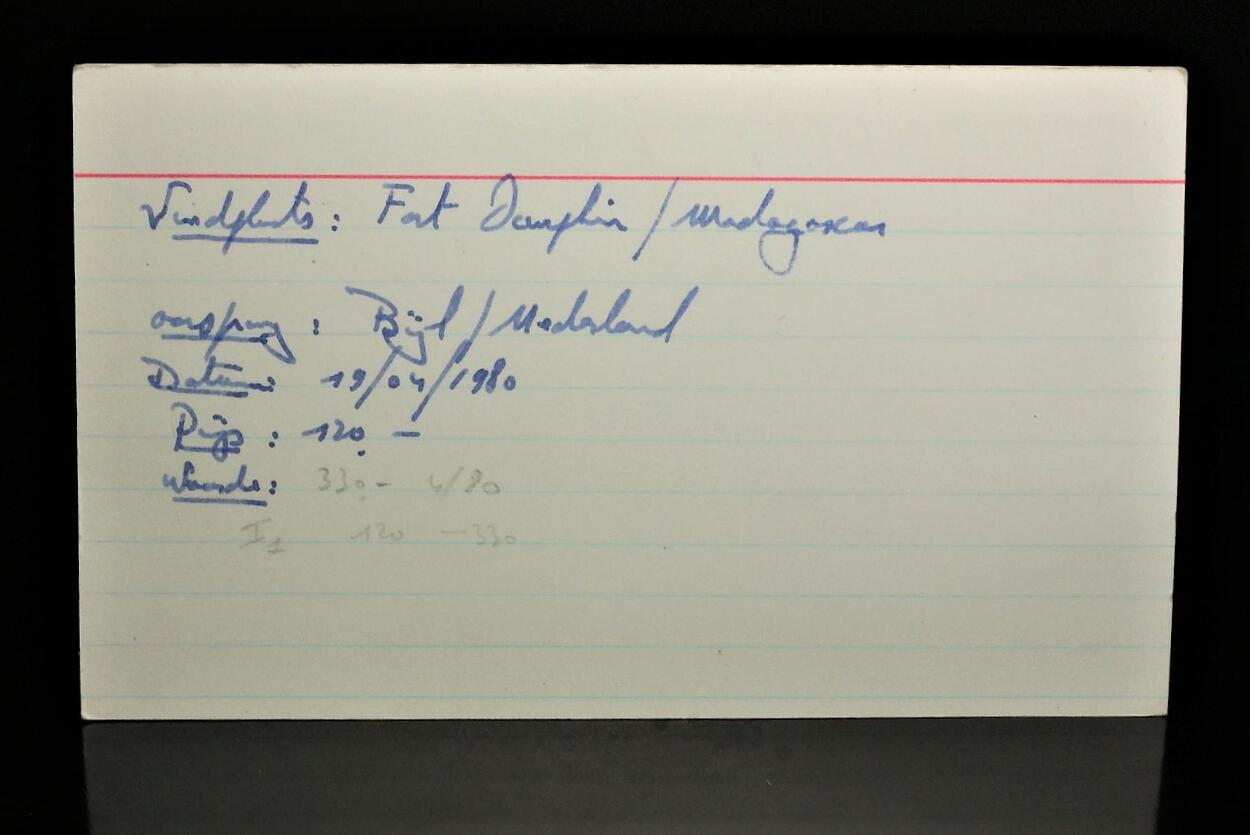 Vindplaats: Fort Dauphin / Madagaskar
oorsprong: Bijl / Nederland
Datum: 19/04/1980
Prijs: 120.-
Waarde: 330.- 4/80
I1 120 - 330